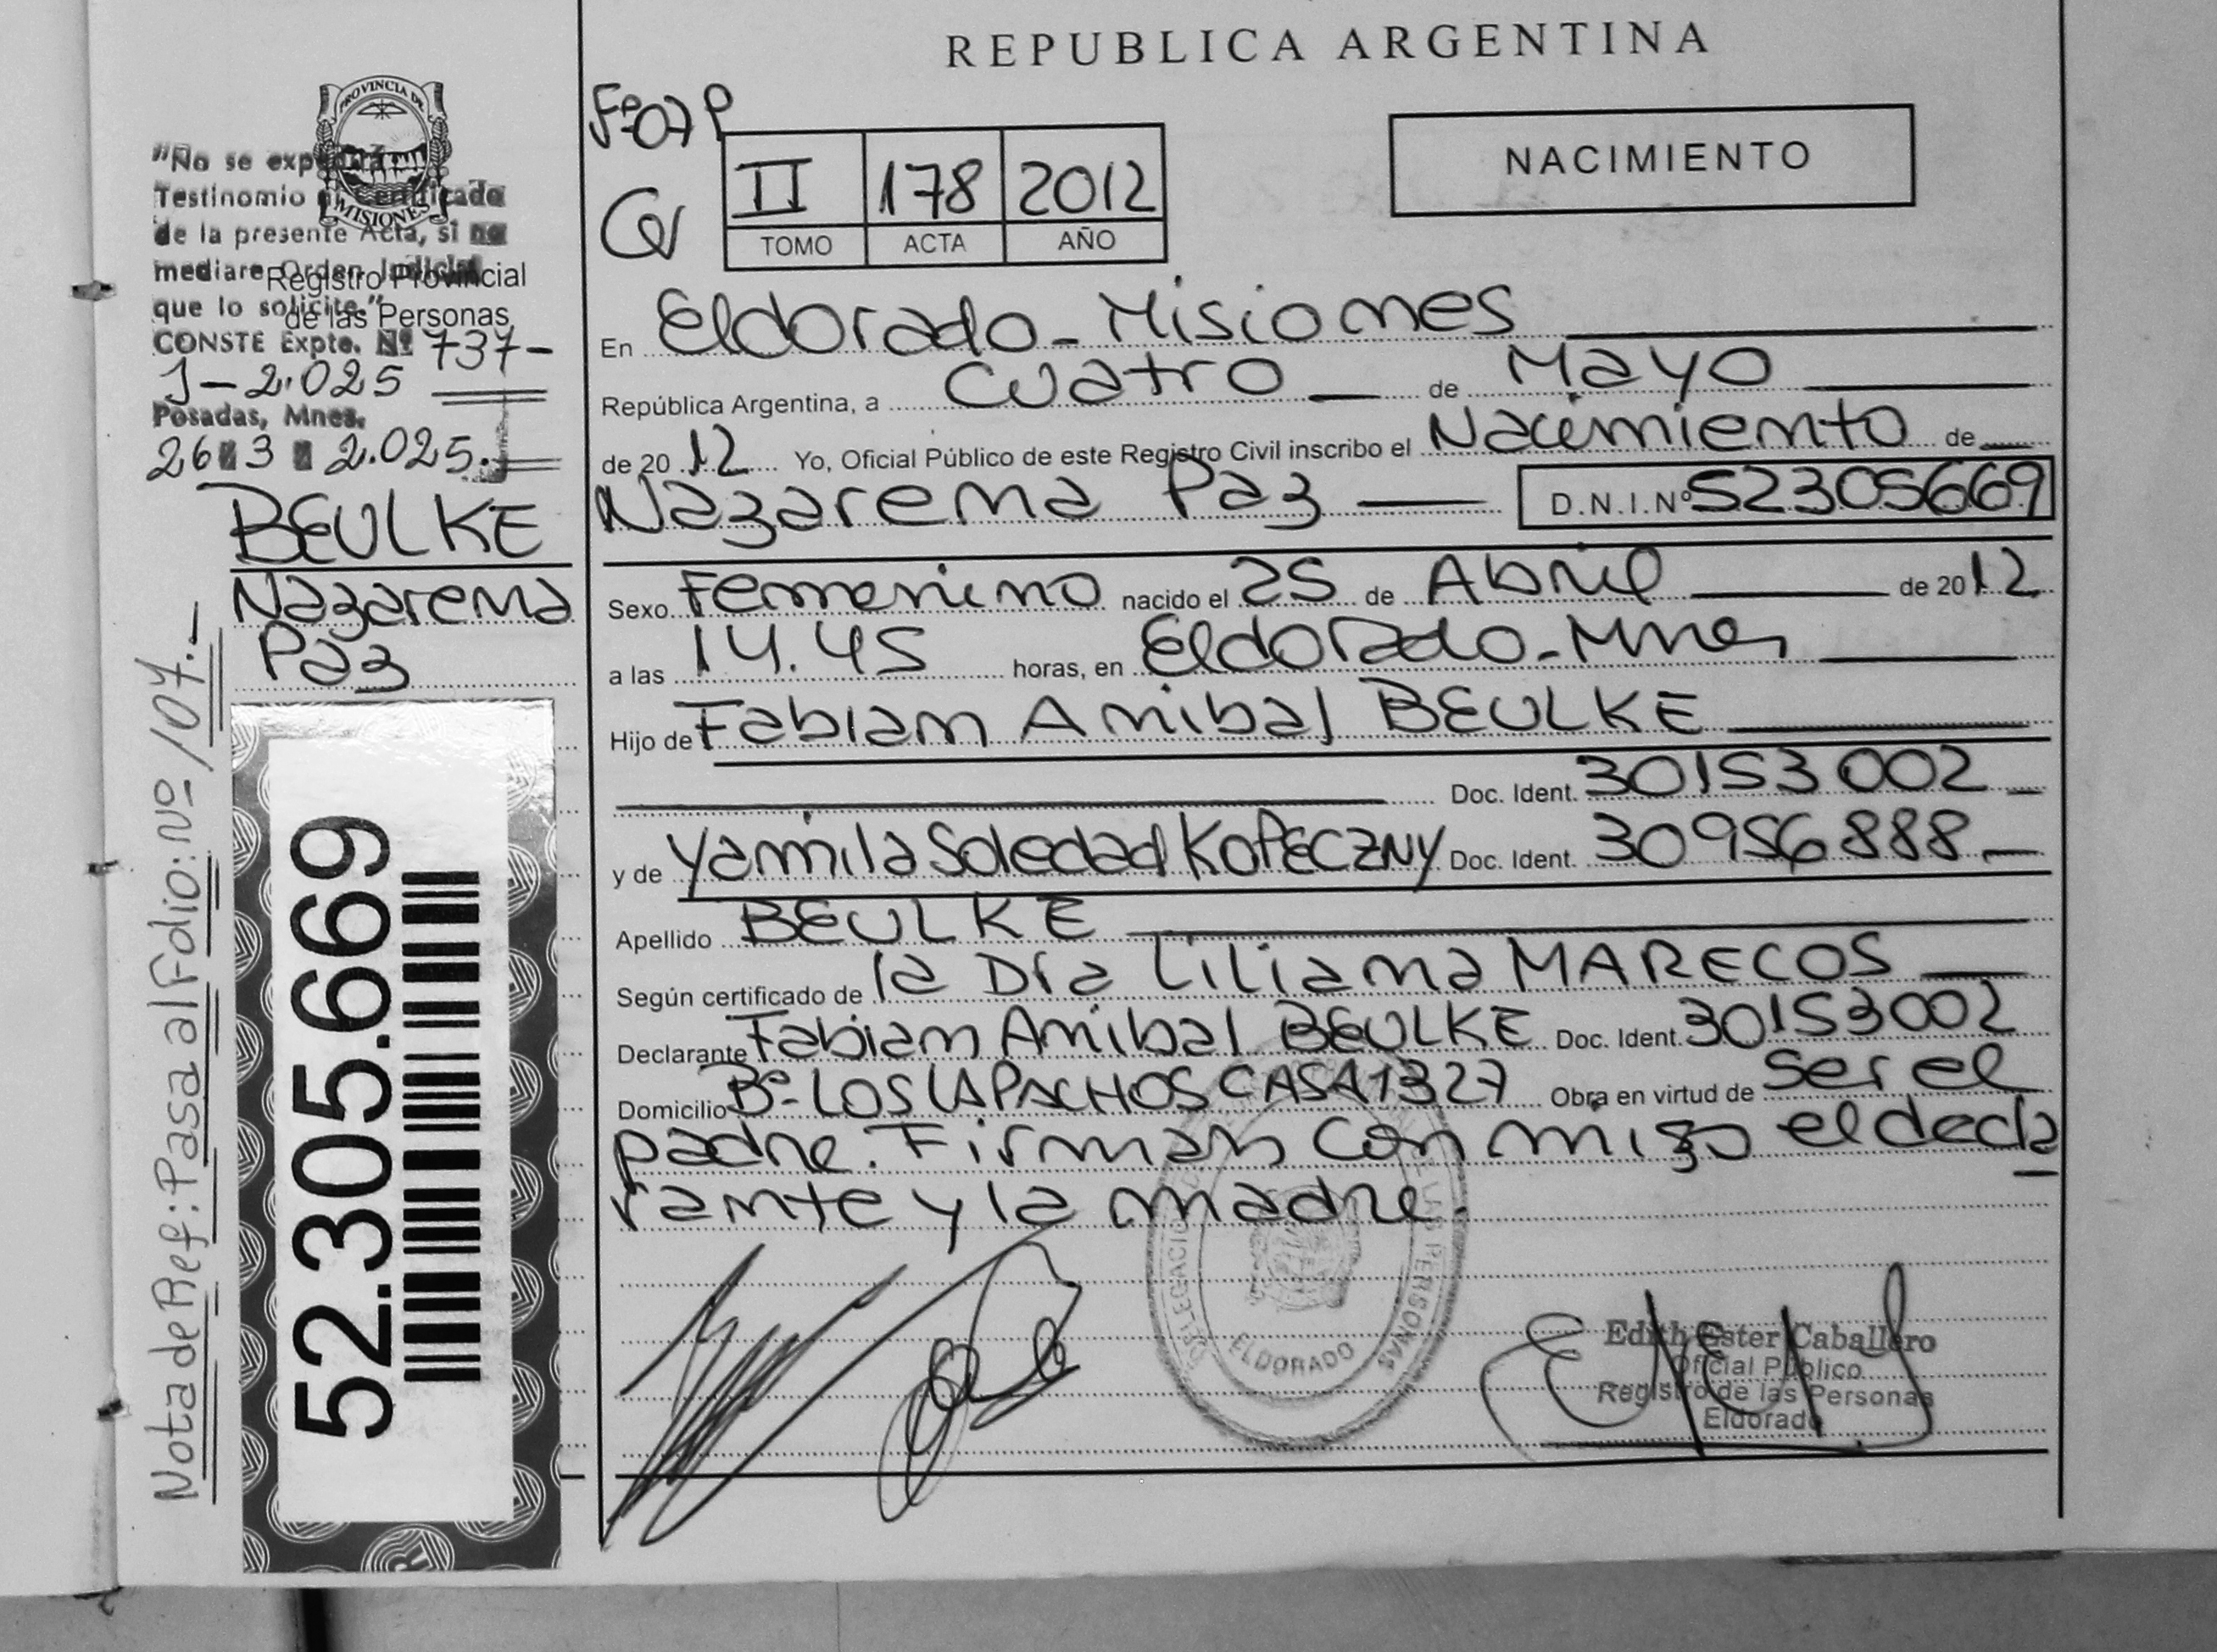 REPUBLICA ARGENTINA
NACIMIENTO
II 178 2012
TOMO ACTA AÑO
PROVINCIA DE
MISIONES
Registro Provincial
de las Personas
"No se expedirá
Testinomio ni Certificado
de la presente Acta, si no
mediare Orden Judicial
que lo solicite."
CONSTE Expte. Nº 737-
J-2.025
Posadas, Mnes.
26 3 2.025.
BEULKE
Nazarena
Paz
52.305.669
Nota de Ref: Pasa al Folio: Nº 107.-
En Eldorado - Misiones
República Argentina, a cuatro de Mayo
de 20 12 Yo, Oficial Público de este Registro Civil inscribo el Nacimiento de
Nazarena Paz D.N.I. Nº 52305669
Sexo Femenino nacido el 25 de Abril de 20 12
a las 14.45 horas, en Eldorado - Mnes
Hijo de Fabian Anibal BEULKE
Doc. Ident. 30153002
y de Yamila Soledad KOPECZNY Doc. Ident. 30956888
Apellido BEULKE
Según certificado de la Dra Liliana MARECOS
Declarante Fabian Anibal BEULKE Doc. Ident. 30153002
Domicilio Bº LOS LAPACHOS CASA 1327 Obra en virtud de ser el
padre. Firman conmigo el decla
rante y la madre.
ELDORADO
Edith Ester Caballero
Oficial Público
Registro de las Personas
Eldorado